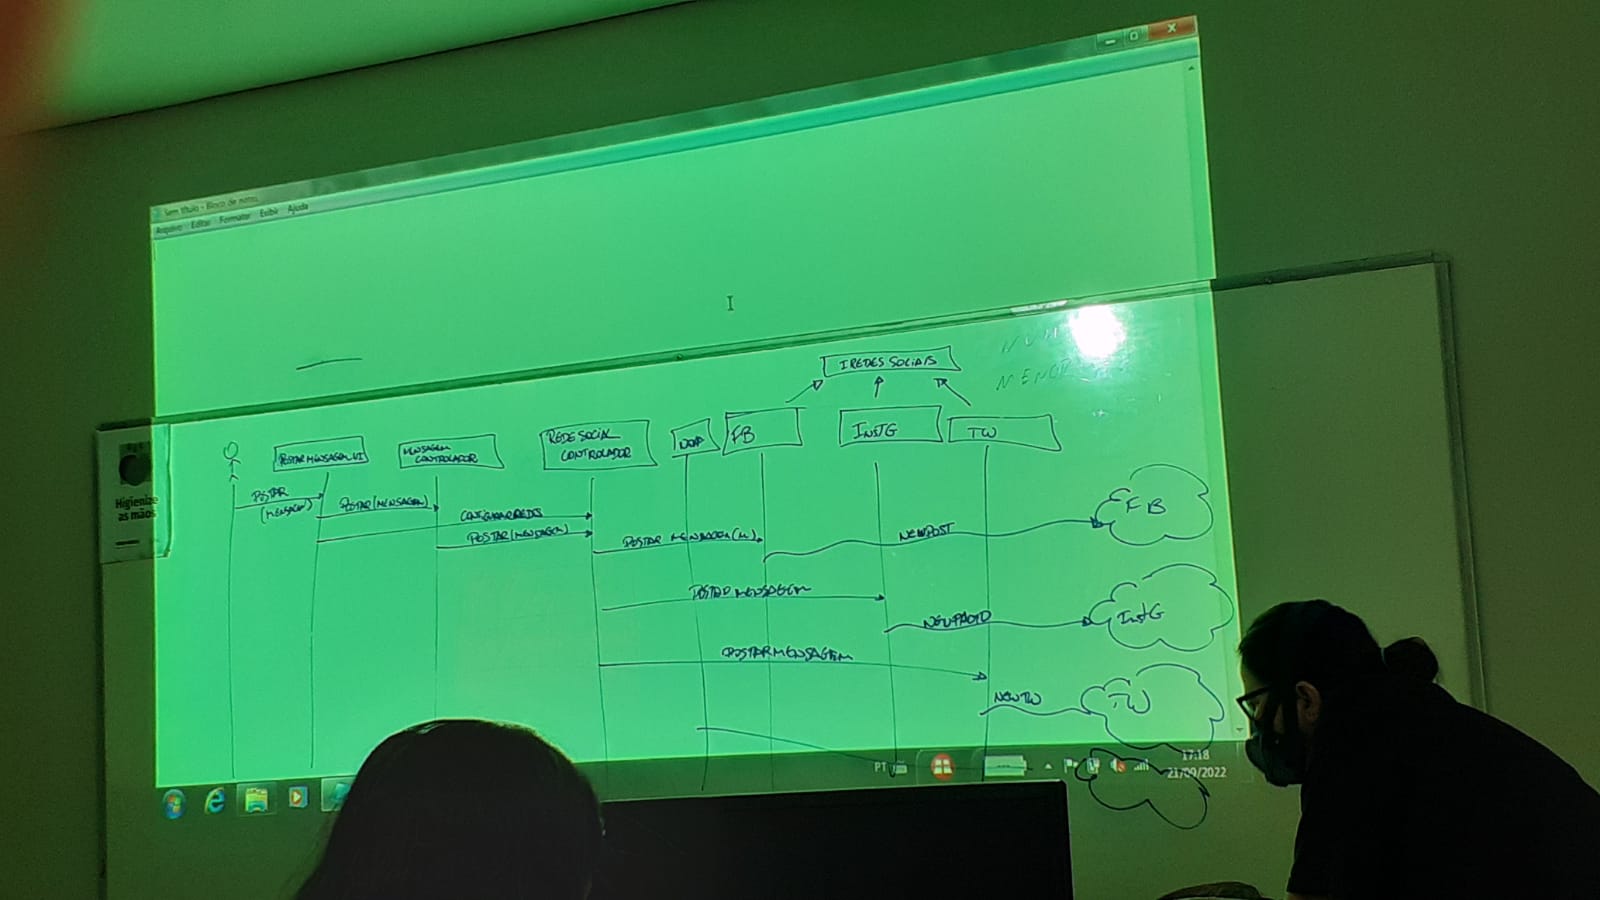 Sem título - Bloco de notas
Arquivo Editar Formatar Exibir Ajuda
IREDES SOCIAIS
POSTAR MENSAGEM UI
MENSAGEM
CONTROLADOR
REDE SOCIAL
CONTROLADOR
FB
INSTG
TW
Higienize
as mãos
POSTAR
(MENSAGEM)
POSTAR (MENSAGEM)
CONFIGURARREDES
POSTAR (MENSAGEM)
POSTAR MENSAGEM(M)
NEWPOST
FB
POSTAR MENSAGEM
InstG
POSTAR MENSAGEM
NEWTW
TW
PT
17:18
21/09/2022